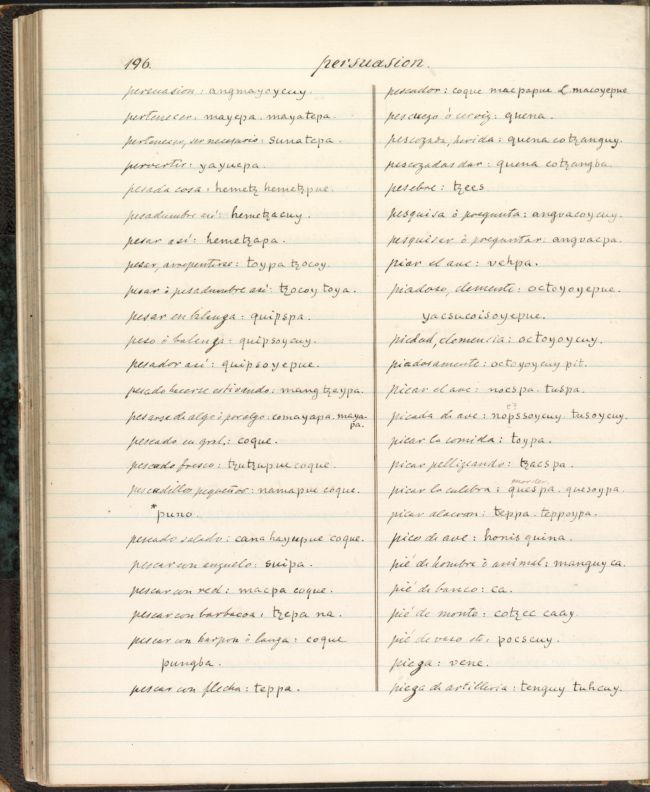 196.
persuasion.
persuasion: angmayoycuy.
pertenecer: mayepa. mayatepa.
pertenecer, ser necesario: sunatepa.
pervertir: yayuepa.
pesada cosa: hemetz hemetzpue.
pesadumbre asi: hemetzacuy.
pesar asi: hemetzapa.
pesar, arrepentirse: toypa tzocoy.
pesar ò pesadumbre asi: tzocoy toya.
pesar en balanza: quipspa.
peso ó balanza: quipsoycuy.
pesador asi: quipsoyepue.
pesado hacerse estivando: mang tzaypa.
pesarse de algo ò por algo: comayapa. maya-
pa.
pescado en gral: coque.
pescado fresco: tzutzupue coque.
pescadillos pequeños: namapue coque.
*puno.
pescado salado: cana hayupue coque.
pescar con anzuelo: suipa.
pescar con red: macpa coque.
pescar con barbacoa: tzepa na.
pescar con harpon ò lanza: coque
pungba.
pescar con flecha: teppa.
pescador: coque macpapue L. macoyepue
pescuezo ó cerviz: quena.
pescozada, herida: quena cotzanguy.
pescozadas dar: quena cotzangba.
pesebre: tzees.
pesquisa ò pregunta: angvacoycuy.
pesquisar ò preguntar: angvacpa.
piar el ave: vehpa.
piadoso, clemente: octoyoyepue.
yacsucoisoyepue.
piedad, clemencia: octoyoycuy.
piadosamente: octoyoycuy pit.
picar el ave: nocspa. tuspa.
picada de ave: nopssoycuy. tusoycuy.
picar la comida: toypa.
picar pellizcando: tzacspa.
morder
picar la culebra: quespa. quesoypa.
picar alacran: teppa. teppoypa.
pico de ave: honis quina.
pié de hombre ò animal: manguy ca.
pié de banco: ca.
pié de monte: cotzec caay.
pié de vaso etc: pocscuy.
pieza: vene.
pieza de artilleria: tenguy tuhcuy.